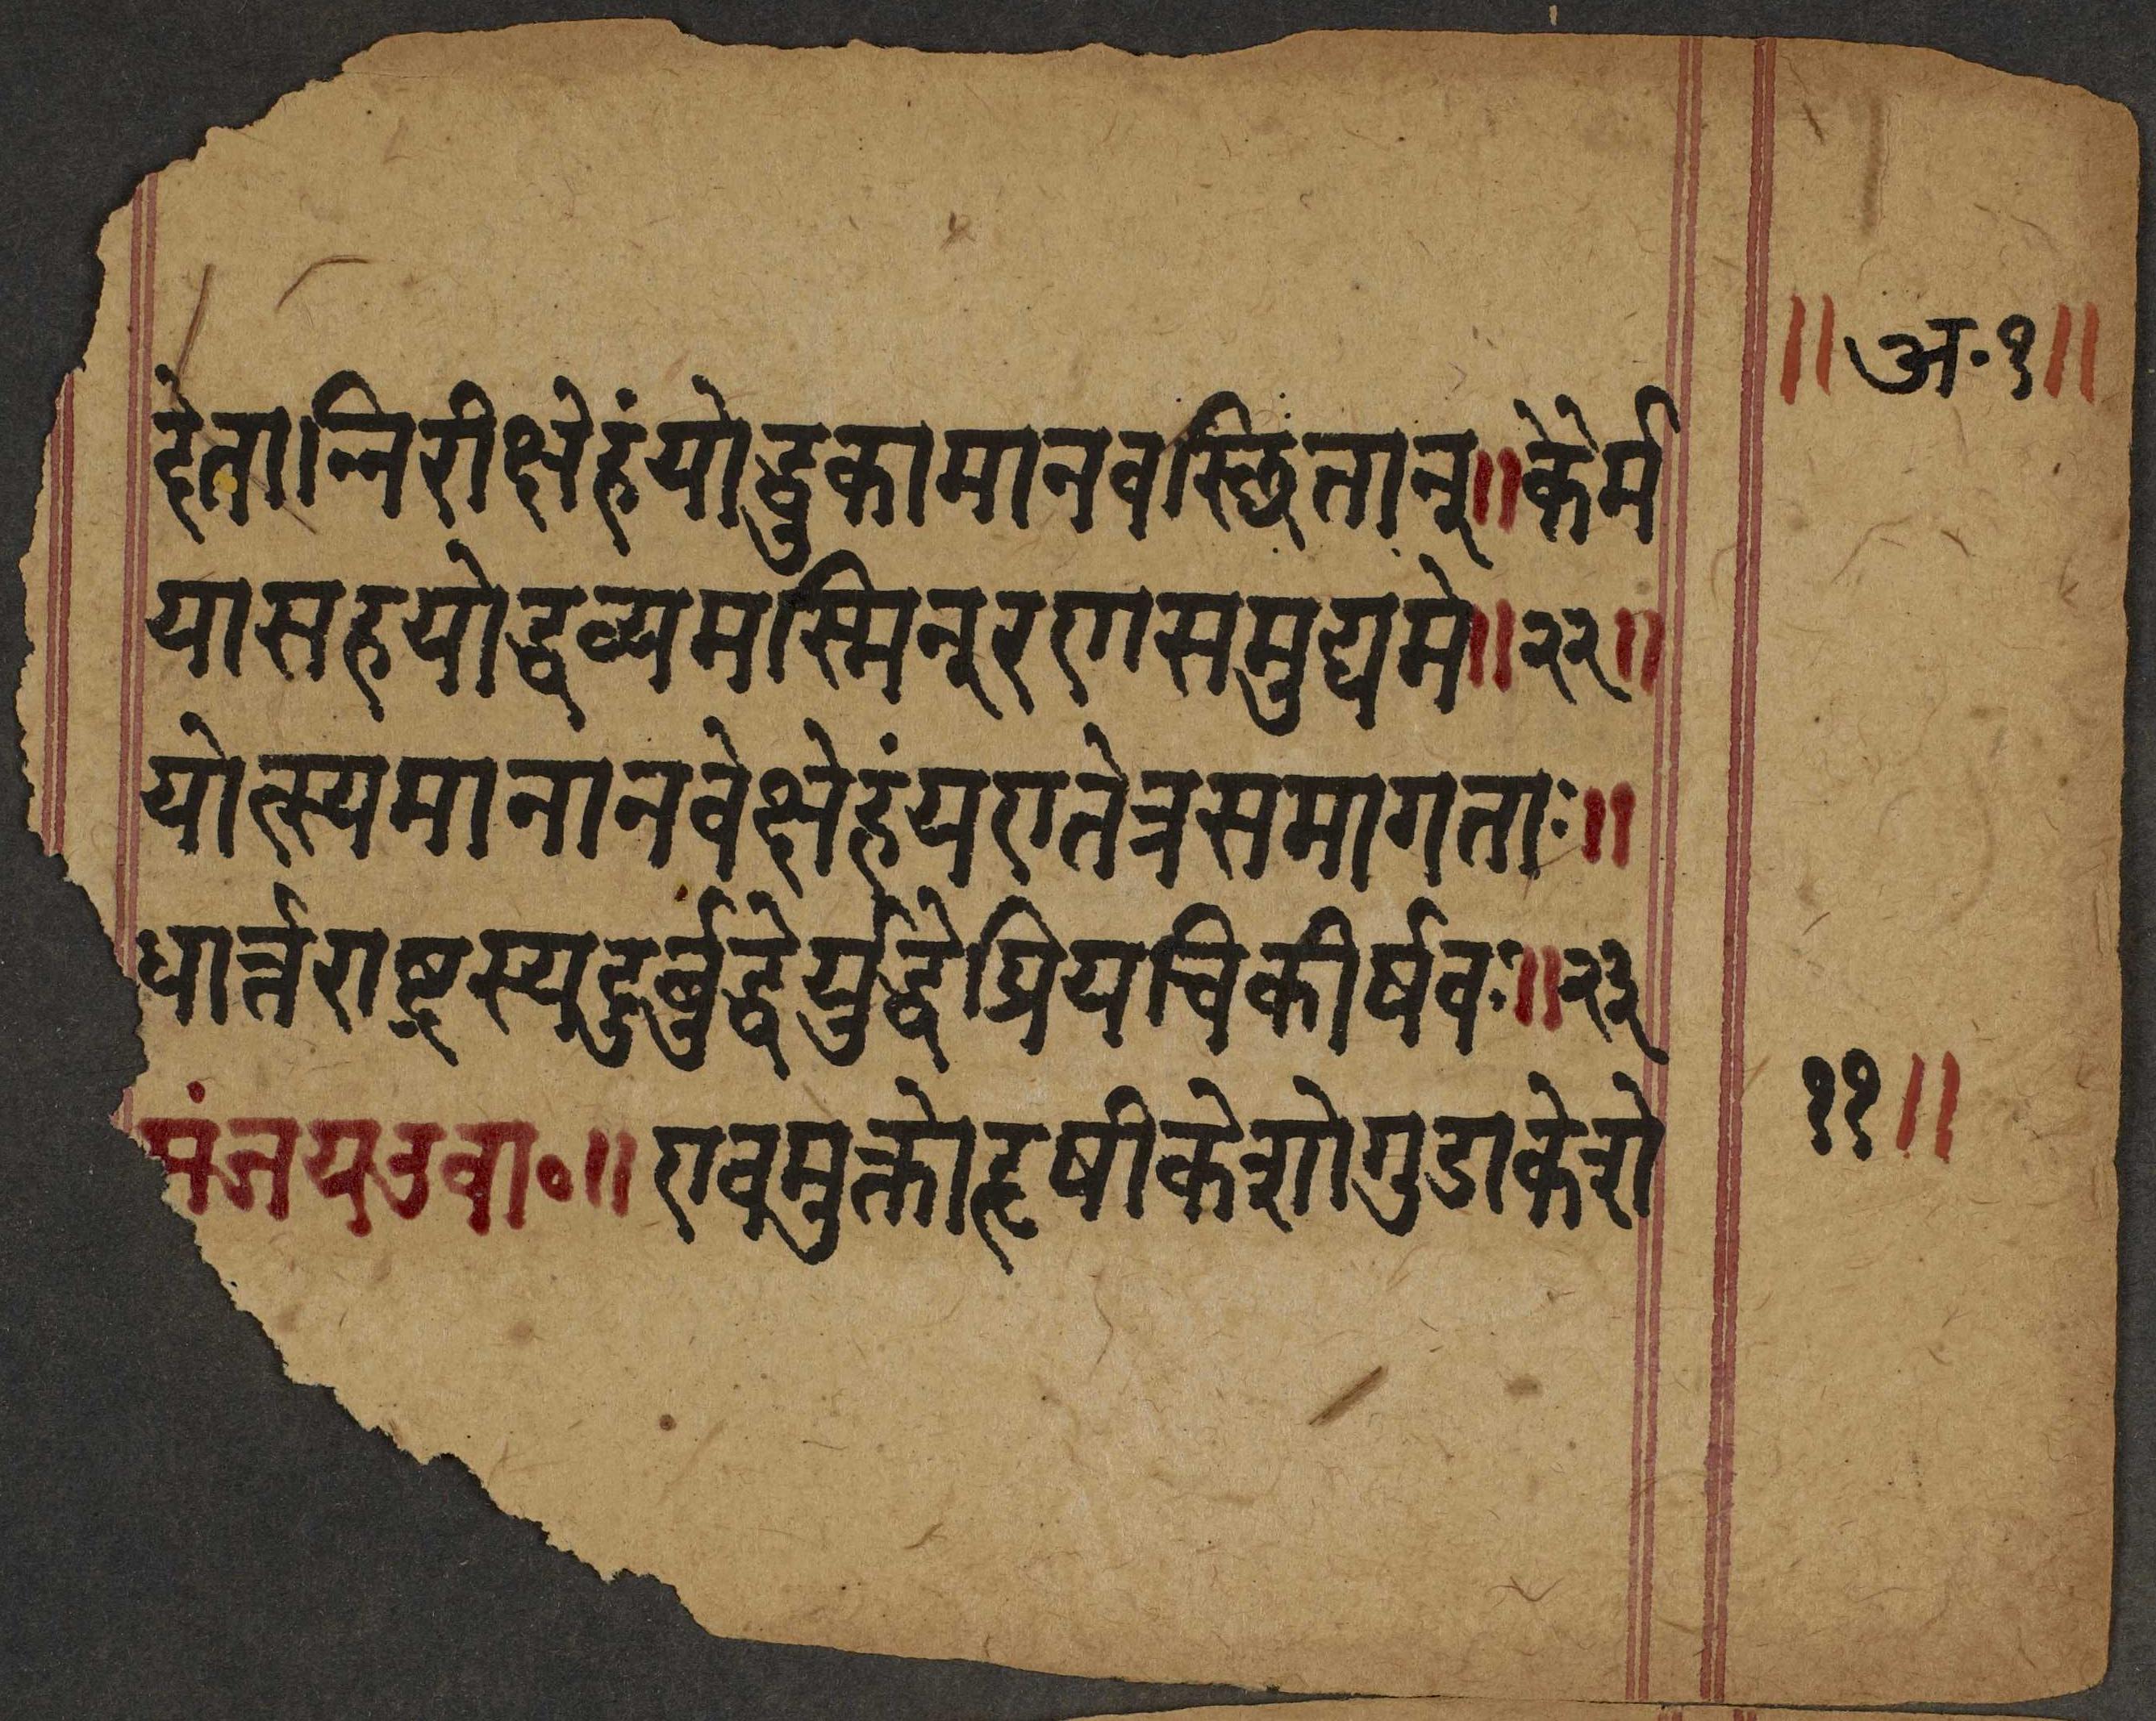 ॥अ॰१॥
देतान्निरीक्षेहंयोद्धुकामानवस्छितान्॥कैर्म
यासहयोद्धव्यमस्मिन्रणसमुद्यमे॥२२॥
योत्स्यमानानवेक्षेहंयएतेत्रसमागताः॥
धार्त्तराष्ट्रस्यदुर्बुद्धेर्युद्धेप्रियचिकीर्षवः॥२३
११॥
संजयउवा॰॥एवमुक्तोहृषीकेशोगुडाकेशे